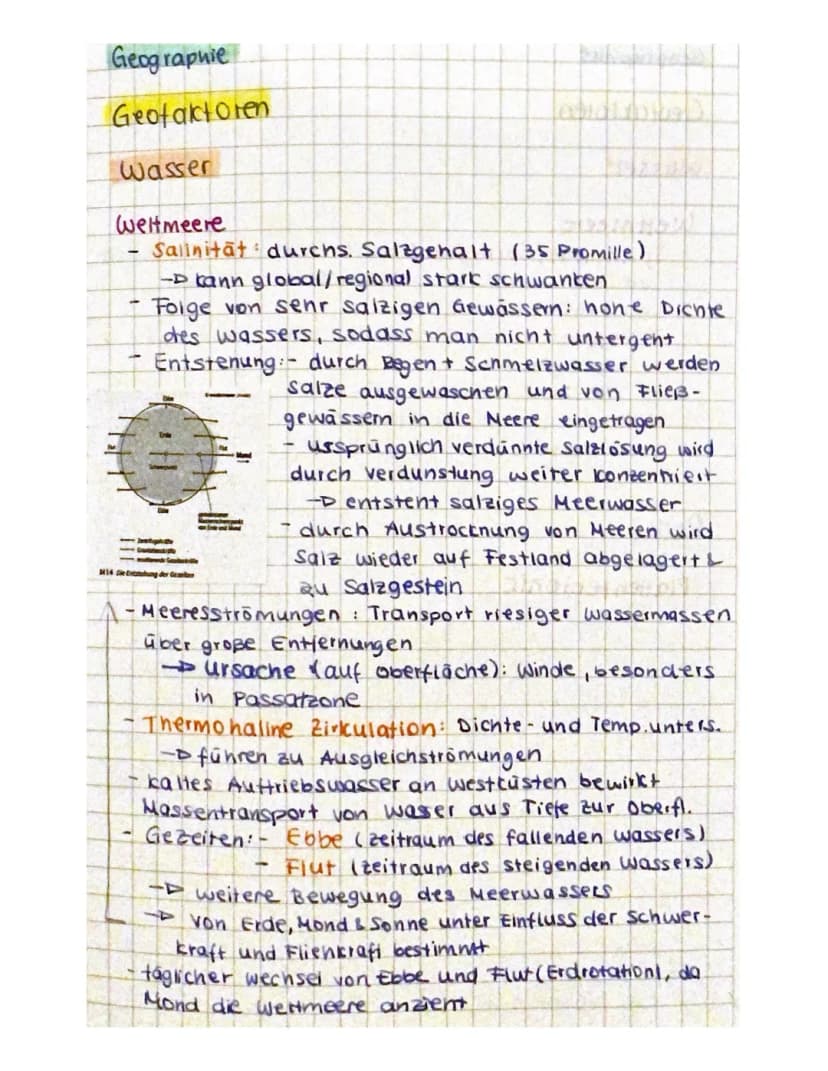 Geographie
Geofaktoren
Wasser
Weltmeere
- Salinität: durchs. Salzgehalt (35 Promille)
→ kann global/regional stark schwanken
- Folge von sehr salzigen Gewässern: hohe Dichte
des Wassers, sodass man nicht untergeht
- Entstehung: - durch Regen + Schmelzwasser werden
Salze ausgewaschen und von Fließ-
gewässern in die Meere eingetragen
- ursprünglich verdünnte Salzlösung wird
durch Verdunstung weiter konzentriert
→ entsteht salziges Meerwasser
- durch Austrocknung von Meeren wird
Salz wieder auf Festland abgelagert &
zu Salzgestein
Erde
Mond
M14 Die Entstehung der Gezeiten
- Meeresströmungen: Transport riesiger Wassermassen
über große Entfernungen
→ Ursache (auf Oberfläche): Winde, besonders
in Passatzone
- Thermohaline Zirkulation: Dichte- und Temp.unters.
→ führen zu Ausgleichströmungen
- kaltes Auftriebswasser an Westküsten bewirkt
Massentransport von Wasser aus Tiefe zur Oberfl.
- Gezeiten: - Ebbe (Zeitraum des fallenden Wassers)
- Flut (Zeitraum des steigenden Wassers)
→ weitere Bewegung des Meerwassers
→ von Erde, Mond & Sonne unter Einfluss der Schwer-
kraft und Fliehkraft bestimmt
- täglicher Wechsel von Ebbe und Flut (Erdrotation), da
Mond die Weltmeere anzieht